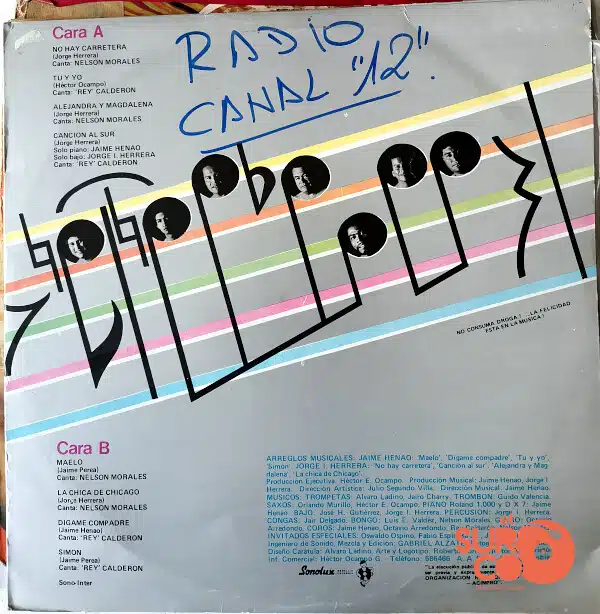 Cara A
NO HAY CARRETERA
(Jorge Herrera)
Canta: NELSON MORALES
TU Y YO
(Héctor Ocampo)
Canta: 'REY' CALDERON
ALEJANDRA Y MAGDALENA
(Jorge Herrera)
Canta: NELSON MORALES
CANCION AL SUR
(Jorge Herrera)
Solo piano: JAIME HENAO
Solo bajo: JORGE I. HERRERA
Canta: 'REY' CALDERON
RADIO
CANAL "12".
NO CONSUMA DROGA! ...LA FELICIDAD
ESTA EN LA MUSICA!
Cara B
MAELO
(Jaime Perea)
Canta: NELSON MORALES
LA CHICA DE CHICAGO
(Jorge Herrera)
Canta: NELSON MORALES
DIGAME COMPADRE
(Jaime Henao)
Canta: 'REY' CALDERON
SIMON
(Jaime Perea)
Canta: 'REY' CALDERON
Sono-Inter
ARREGLOS MUSICALES: JAIME HENAO: 'Maelo', 'Dígame compadre', 'Tu y yo',
'Simón'. JORGE I. HERRERA: 'No hay carretera', 'Canción al sur', 'Alejandra y Mag
dalena', 'La chica de Chicago'.
Producción Ejecutiva: Héctor E. Ocampo. Producción Musical: Jaime Henao, Jorge I.
Herrera. Dirección Artística: Julio Segundo Villa. Dirección Musical: Jaime Henao.
MUSICOS: TROMPETAS: Alvaro Ladino, Jairo Charry. TROMBON: Guido Valencia.
SAXOS: Orlando Murillo, Héctor E. Ocampo. PIANO Roland 1.000 y D X 7: Jaime
Henao. BAJO: José H. Gutiérrez, Jorge I. Herrera. PERCUSION: Jorge I. Herrera.
CONGAS: Jair Delgado. BONGO: Luis E. Valdéz, Nelson Morales.
Arredondo. COROS: Jaime Henao, Octavio Arredondo,
INVITADOS ESPECIALES: Oswaldo Ospino, Fabio
Ingeniero de Sonido, Mezcla y Edición: GABRIEL
Diseño Carátula: Alvaro Ladino. Arte y Logotipo:
Inf. Comercial: Héctor Ocampo G. - Teléfono: 586466 A. A.
Sonolux
"La ejecución pública
ORGANIZACION